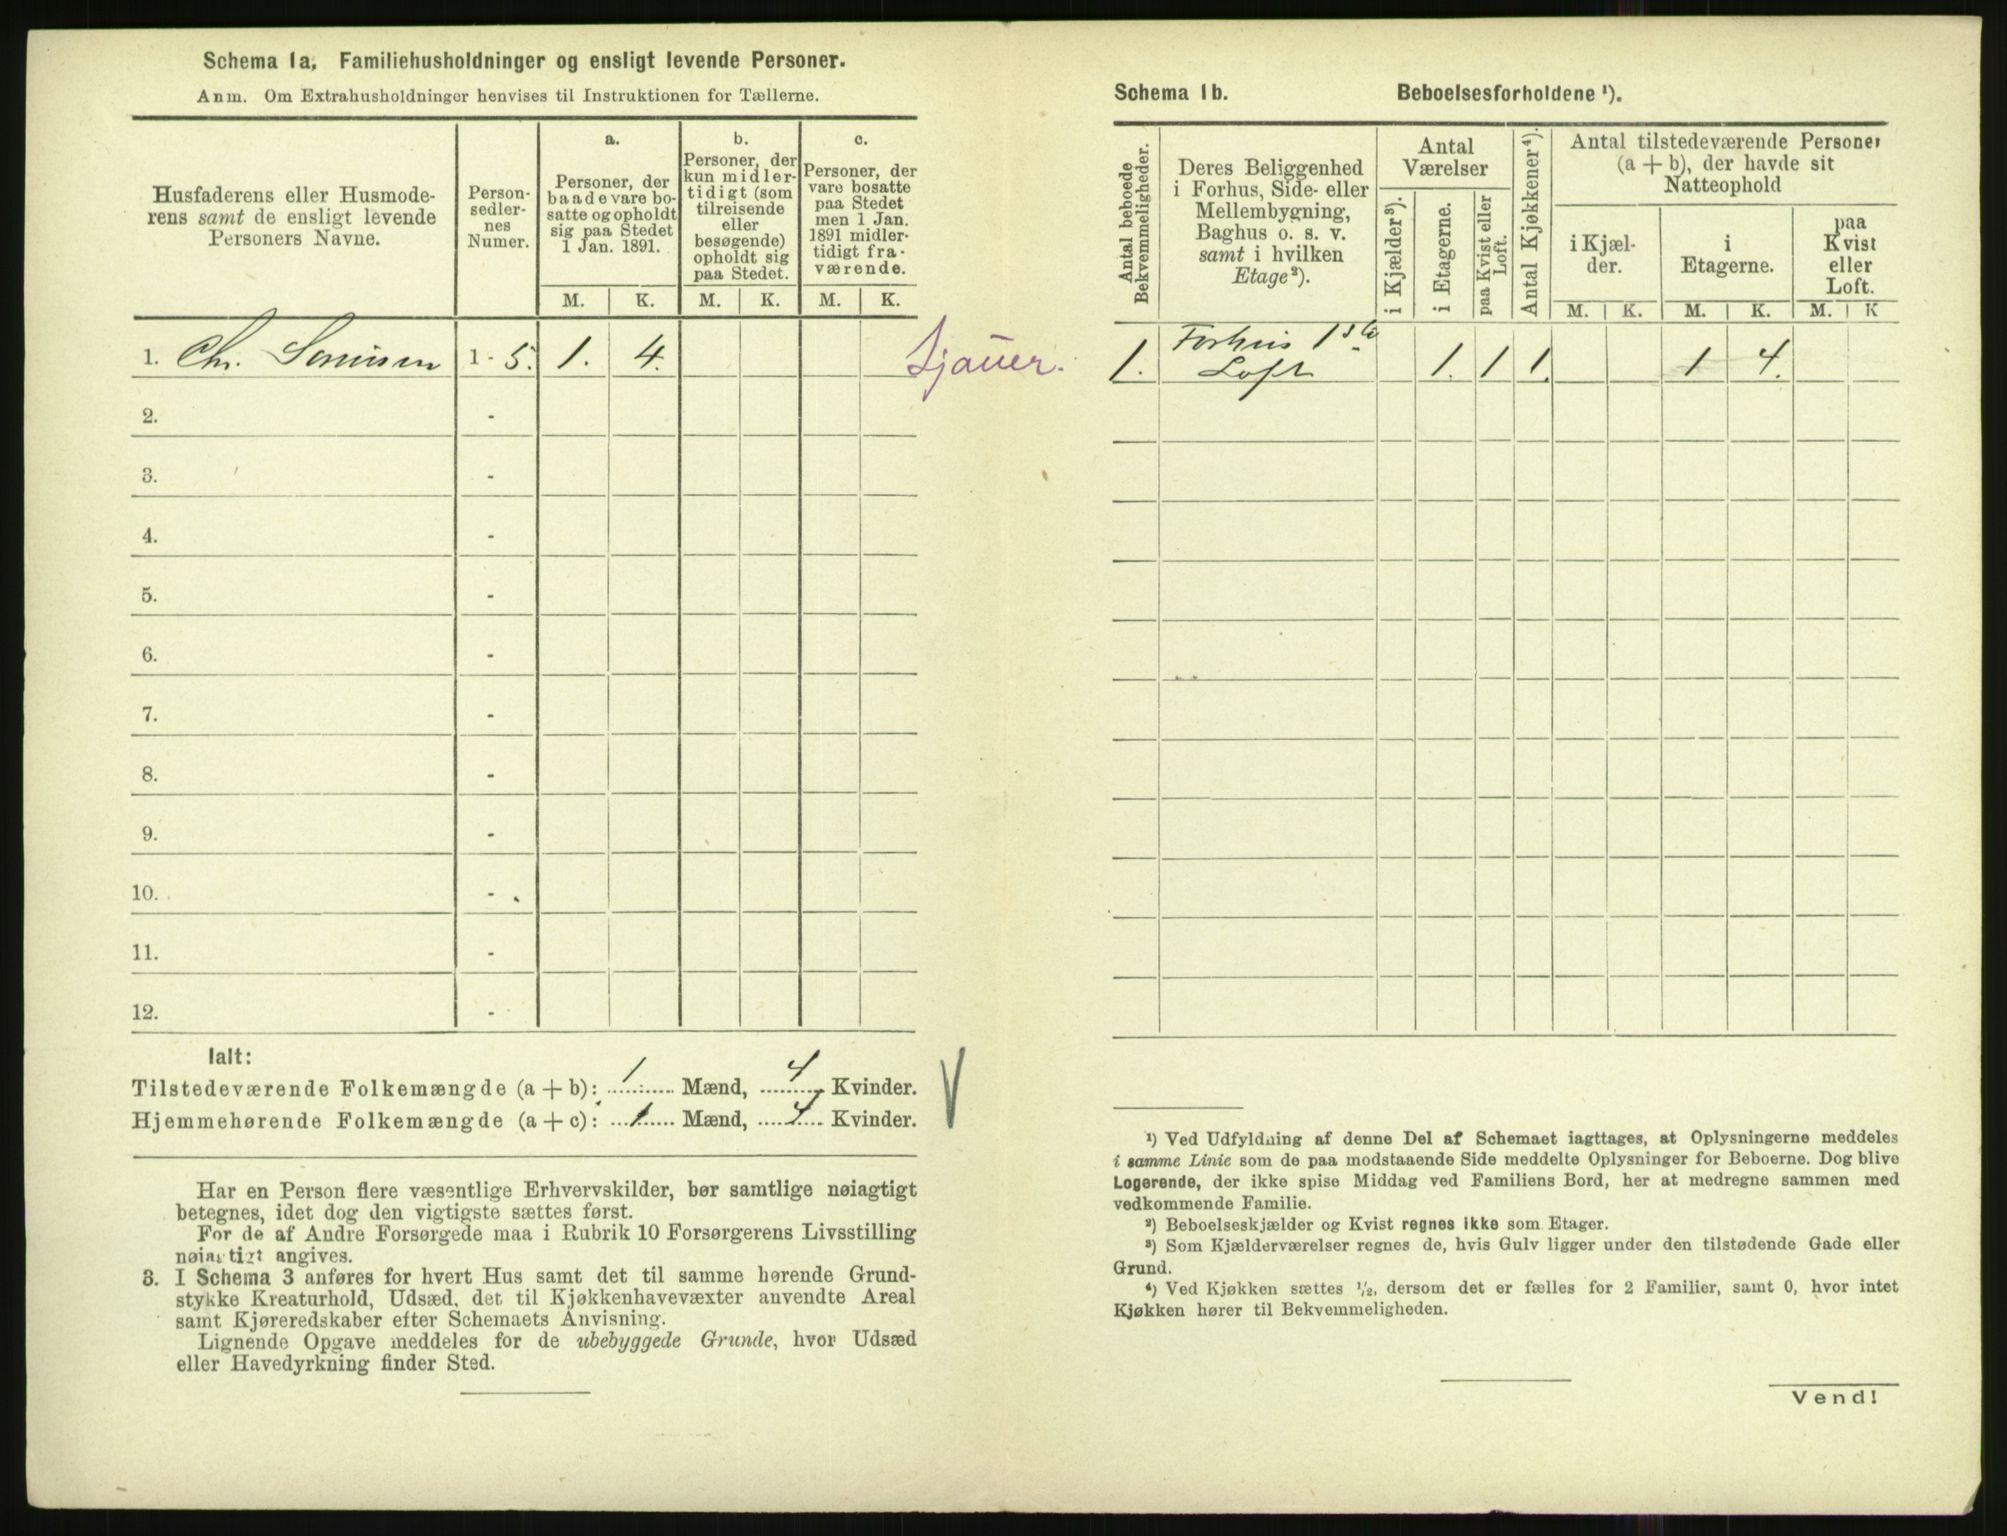 Schema 1a, Familiehusholdninger og ensligt levende Personer.
Anm. Om Extrahusholdninger henvises til Instruktionen for Tællerne.
Husfaderens eller Husmoderens samt de ensligt levende Personers Navne.
Personsedlernes Numer.
a.
Personer, der baade vare bosatte og opholdt sig paa Stedet 1 Jan. 1891.
b.
Personer, der kun midlertidigt (som tilreisende eller besøgende) opholdt sig paa Stedet.
c.
Personer, der vare bosatte paa Stedet men 1 Jan. 1891 midlertidigt fraværende.
M. K. M. K. M. K.
1. Chr. Sørensen 1 - 5. 1. 4. Sjauer.
2. -
3. -
4. -
5. -
6. -
7. -
8. -
9. -
10. -
11. -
12. -
Ialt:
Tilstedeværende Folkemængde (a + b): 1 Mænd, 4 Kvinder.
Hjemmehørende Folkemængde (a + c): 1 Mænd, 4 Kvinder.
Har en Person flere væsentlige Erhvervskilder, bør samtlige nøiagtigt
betegnes, idet dog den vigtigste sættes først.
For de af Andre Forsørgede maa i Rubrik 10 Forsørgerens Livsstilling
nøiagtigt angives.
3. I Schema 3 anføres for hvert Hus samt det til samme hørende Grund-
stykke Kreaturhold, Udsæd, det til Kjøkkenhavevæxter anvendte Areal
samt Kjøreredskaber efter Schemaets Anvisning.
Lignende Opgave meddeles for de ubebyggede Grunde, hvor Udsæd
eller Havedyrkning finder Sted.
Schema 1b. Beboelsesforholdene ¹).
Antal beboede Bekvemmeligheder.
Deres Beliggenhed i Forhus, Side- eller Mellembygning, Baghus o. s. v. samt i hvilken Etage²).
Antal Værelser
i Kjælder³).
i Etagerne.
paa Kvist eller Loft.
Antal Kjøkkener⁴).
Antal tilstedeværende Personer (a + b), der havde sit Natteophold
i Kjælder.
i Etagerne.
paa Kvist eller Loft.
M. K. M. K. M. K
1. Forhus 1ste Loft 1. 1 1. 1 4.
¹) Ved Udfyldning af denne Del af Schemaet iagttages, at Oplysningerne meddeles
i samme Linie som de paa modstaaende Side meddelte Oplysninger for Beboerne. Dog blive
Logerende, der ikke spise Middag ved Familiens Bord, her at medregne sammen med
vedkommende Familie.
²) Beboelseskjælder og Kvist regnes ikke som Etager.
³) Som Kjælderværelser regnes de, hvis Gulv ligger under den tilstødende Gade eller
Grund.
⁴) Ved Kjøkken sættes ½, dersom det er fælles for 2 Familier, samt 0, hvor intet
Kjøkken hører til Bekvemmeligheden.
Vend!